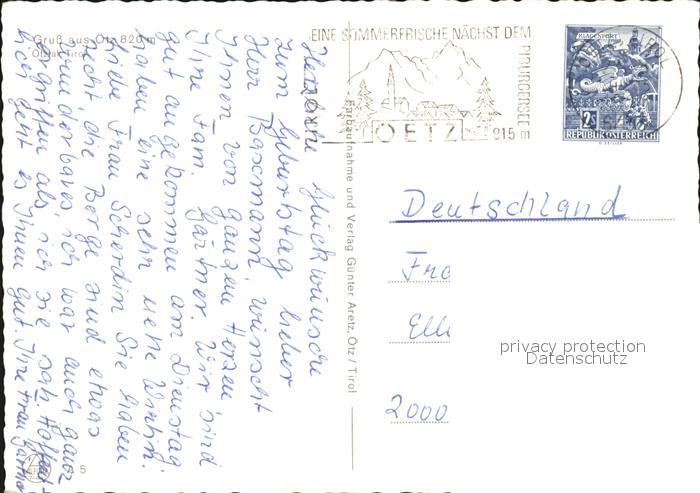 Gruß aus Ötz 820 m
Ötztal, Tirol
EINE SOMMERFRISCHE NÄCHST DEM
PIBURGERSEE
915 m
OETZ
TIROL
KLAGENFURT
2S
REPUBLIK ÖSTERREICH
Herzliche Glückwünsche
zum Geburtstag lieber
Herr Bassmann, wünscht
Ihnen von ganzen Herzen
Ihre Fam. Gärtner. Wir sind
gut angekommen am Dienstag
haben eine sehr nette Wirtin.
Liebe Frau Scherdin Sie haben
recht die Berge sind etwas
wunderbares ich war auch ganz
ergriffen als ich sie sah. Hoffent-
lich geht es Ihnen gut. Ihre Frau Gärtner
Farbaufnahme und Verlag Günter Aretz, Ötz / Tirol
A 5
Deutschland
Fra
Elli
2000
privacy protection
Datenschutz